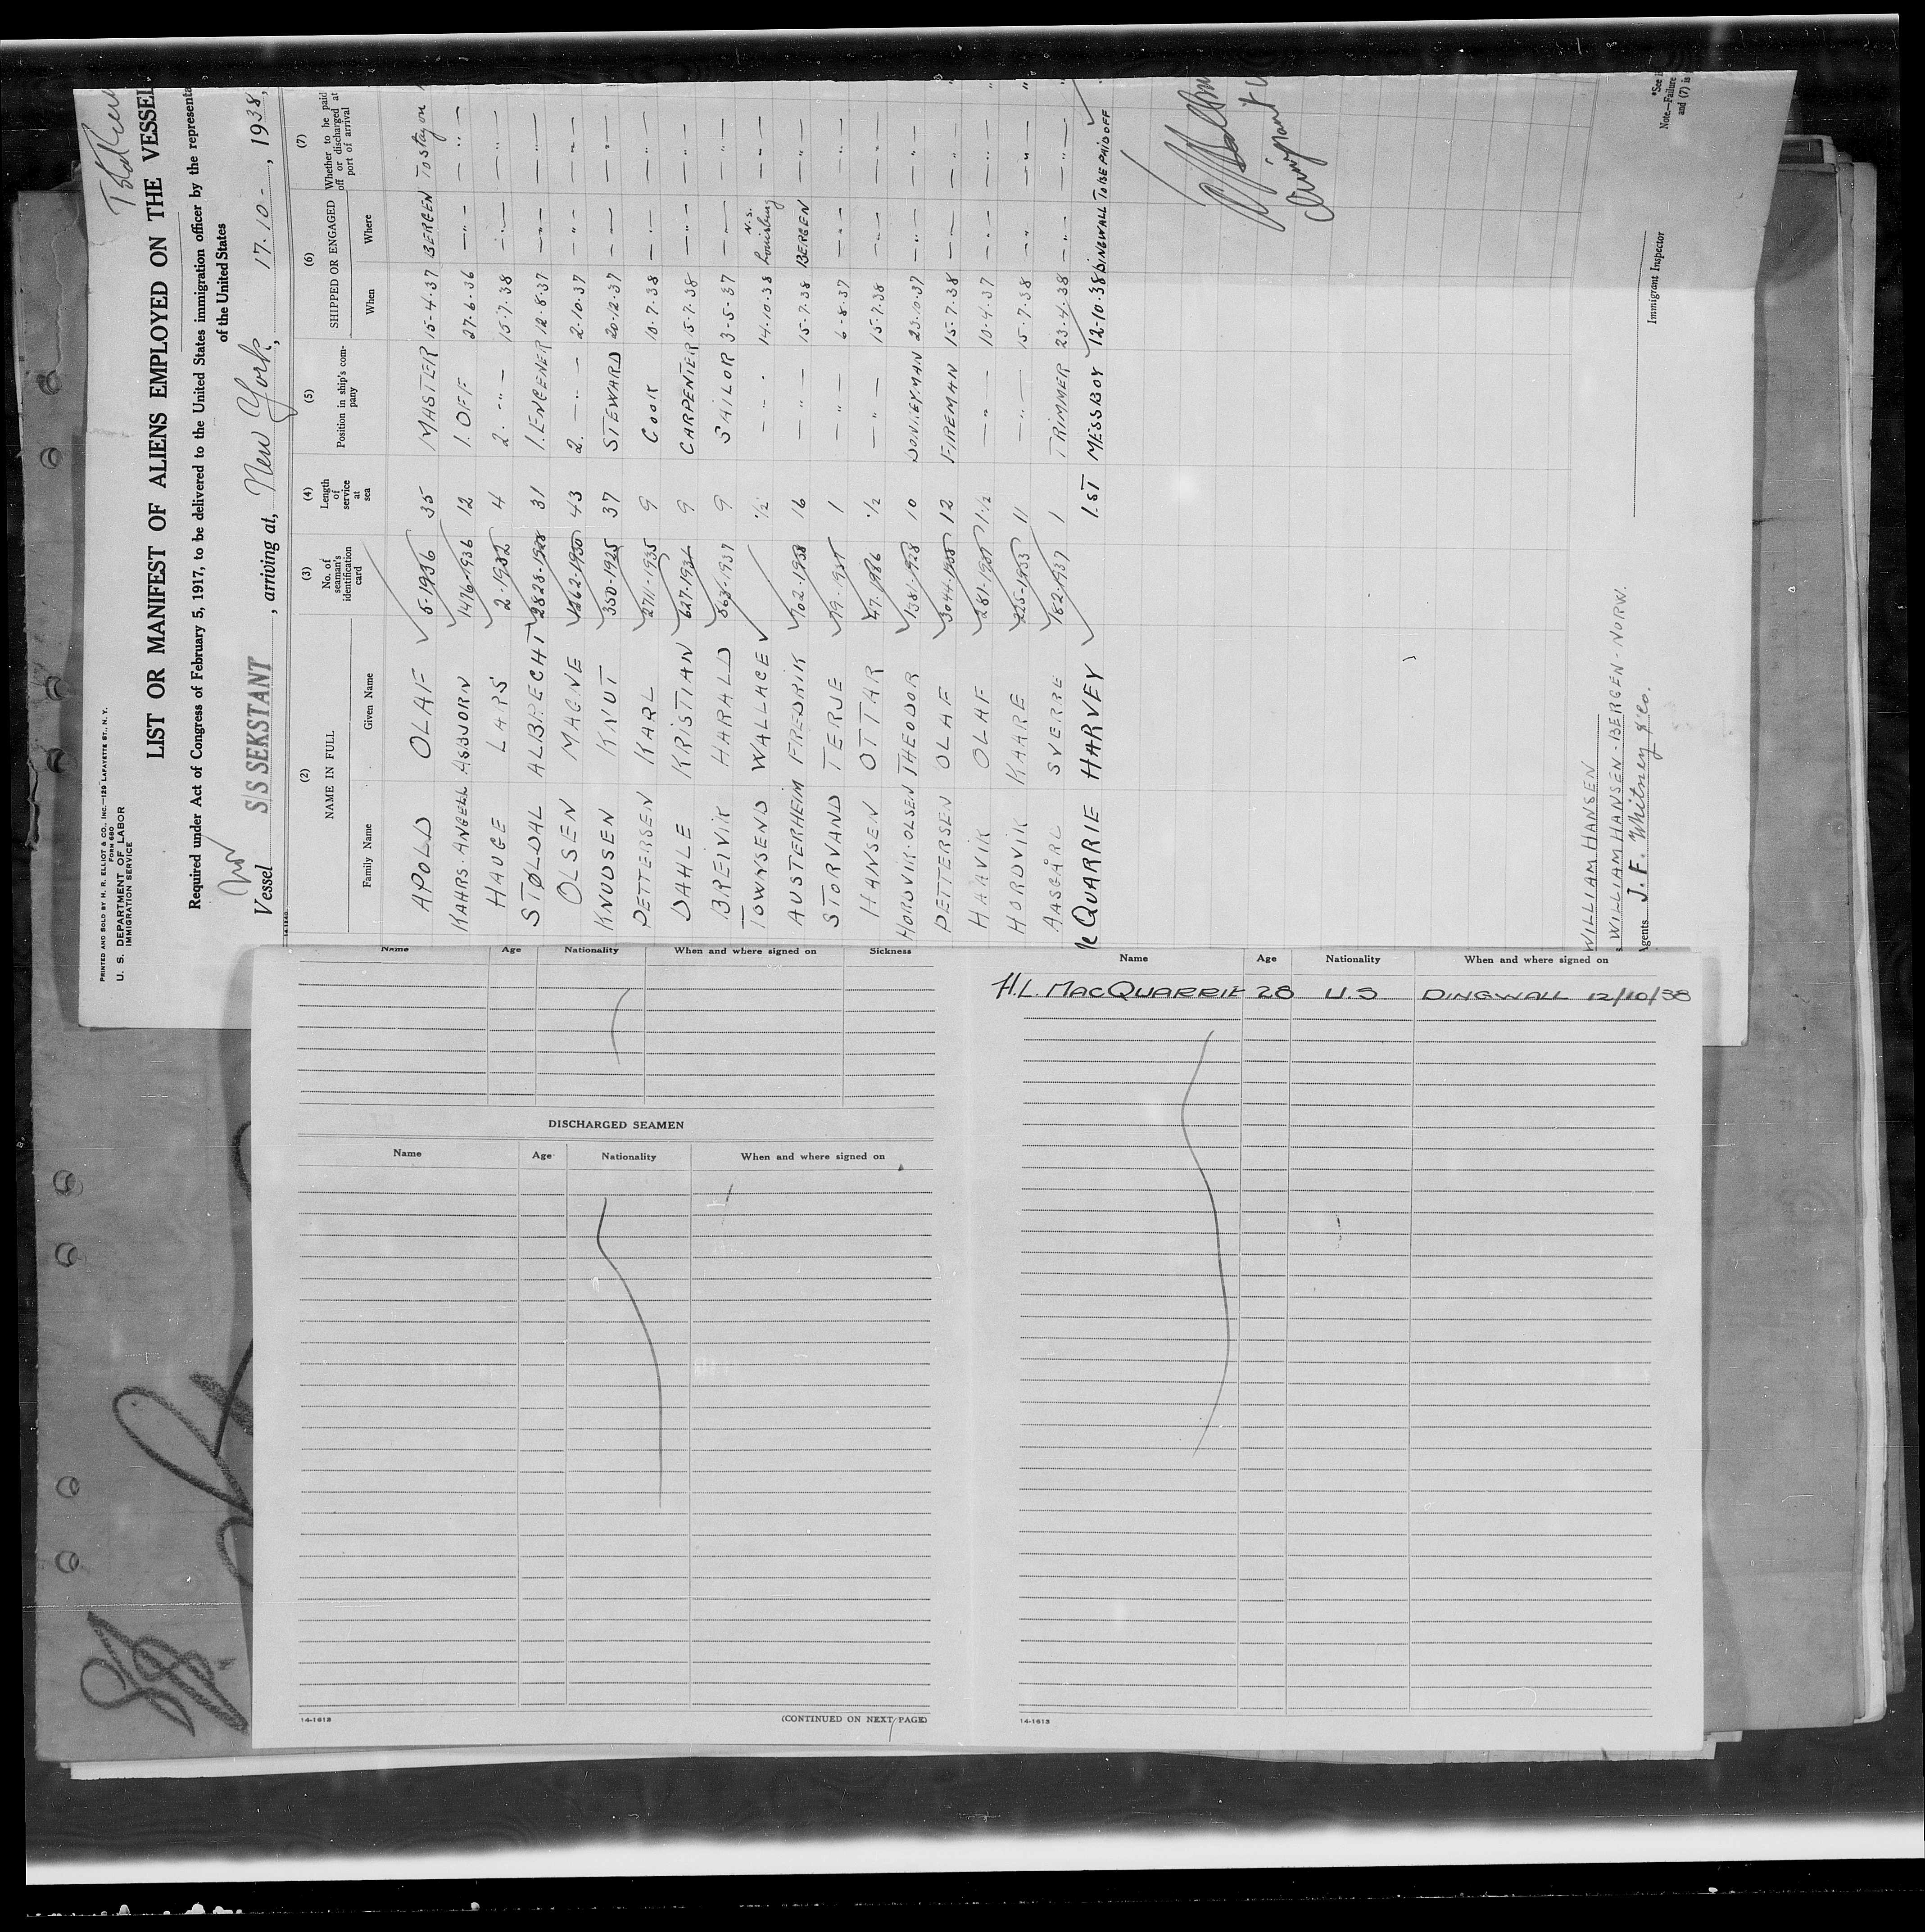 PRINTED AND SOLD BY H. R. ELLIOT & CO., INC.—129 LAFAYETTE ST., N. Y.
FORM 680
U. S. DEPARTMENT OF LABOR
IMMIGRATION SERVICE
LIST OR MANIFEST OF ALIENS EMPLOYED ON THE VESSEL
Required under Act of Congress of February 5, 1917, to be delivered to the United States immigration officer by the representa
of the United States
Vessel S/S SEKSTANT, arriving at, New York, 17-10-, 1938,
(2) (3) (4) (5) (6) (7)
NAME IN FULL No. of seaman's identification card Length of service at sea Position in ship's company SHIPPED OR ENGAGED Whether to be paid off or discharged at port of arrival
Family Name Given Name When Where
APOLD OLAF 5-1936 35 MASTER 15-4-37 BERGEN To stay on
KAHRS-ANGELL ASBJORN 1476-1936 12 1. OFF 27-6-36 —"— —"—
HAUGE LARS 2-1932 4 2. —"— 15-7-38 —"— —"—
STØLDAL ALBRECHT 2828-1928 31 1. ENGENER 12-8-37 —"— —"—
OLSEN MAGNE 1262-1930 43 2. —"— 2-10-37 —"— —"—
KNUDSEN KNUT 350-1925 37 STEWARD 20-12-37 —"— —"—
PETTERSEN KARL 2711-1935 9 COOK 10-7-38 —"— —"—
DAHLE KRISTIAN 627-1934 9 CARPENTER 15-7-38 —"— —"—
BREIVIK HARALD 563-1937 9 SAILOR 3-5-37 —"— —"—
TOWNSEND WALLACE 1/2 —"— 14-10-38 Louisburg N.S. —"—
AUSTERHEIM FREDRIK 702-1938 16 —"— 15-7-38 BERGEN —"—
STORVAND TERJE 79-1937 1 —"— 6-8-37 —"— —"—
HANSEN OTTAR 47-1936 1/2 —"— 15-7-38 —"— —"—
HORDVIK-OLSEN THEODOR 1381-1928 10 DONKEYMAN 23-10-37 —"— —"—
PETTERSEN OLAF 3044-1935 12 FIREMAN 15-7-38 —"— —"—
HAAVIK OLAF 281-1937 1 1/2 —"— 10-4-37 —"— —"—
HORDVIK KAARE 225-1933 11 —"— 15-7-38 —"— —"—
AASGÅRL SVERRE 182-1937 1 TRIMMER 23-4-38 —"— —"—
QUARRIE HARVEY 1.ST MESSBOY 12-10-38 DINGWALL TO BE PAID OFF
WILLIAM HANSEN
WILLIAM HANSEN - BERGEN - NORW.
Agents J. F. Whitney & Co.
Immigrant Inspector
*See
Note.—Failure
and (7) is
Name Age Nationality When and where signed on Sickness
DISCHARGED SEAMEN
Name Age Nationality When and where signed on
14-1613 (CONTINUED ON NEXT PAGE)
Name Age Nationality When and where signed on
H.L. MACQUARRIE 28 U.S DINGWALL 12/10/38
14-1613